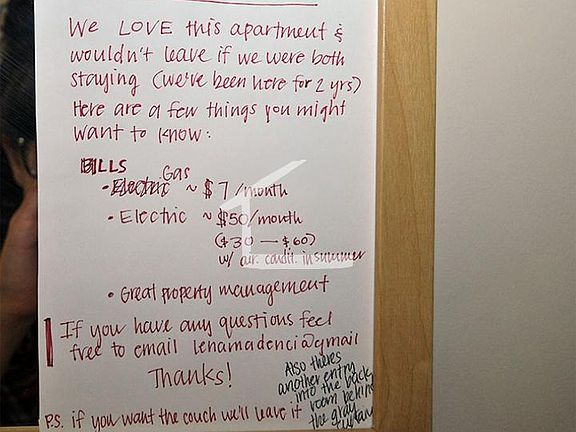 We LOVE this apartment &
wouldn't leave if we were both
staying (we've been here for 2 yrs)
Here are a few things you might
want to know:
BILLS
• Electric Gas ~ $7/month
• Electric ~ $50/month
($30 — $60)
w/ air condit. in summer
• Great property management
If you have any questions feel
free to email lenamadenci@gmail
Thanks!
P.S. if you want the couch we'll leave it
Also theres
another entry
into the back
room behind
the gray
curtain